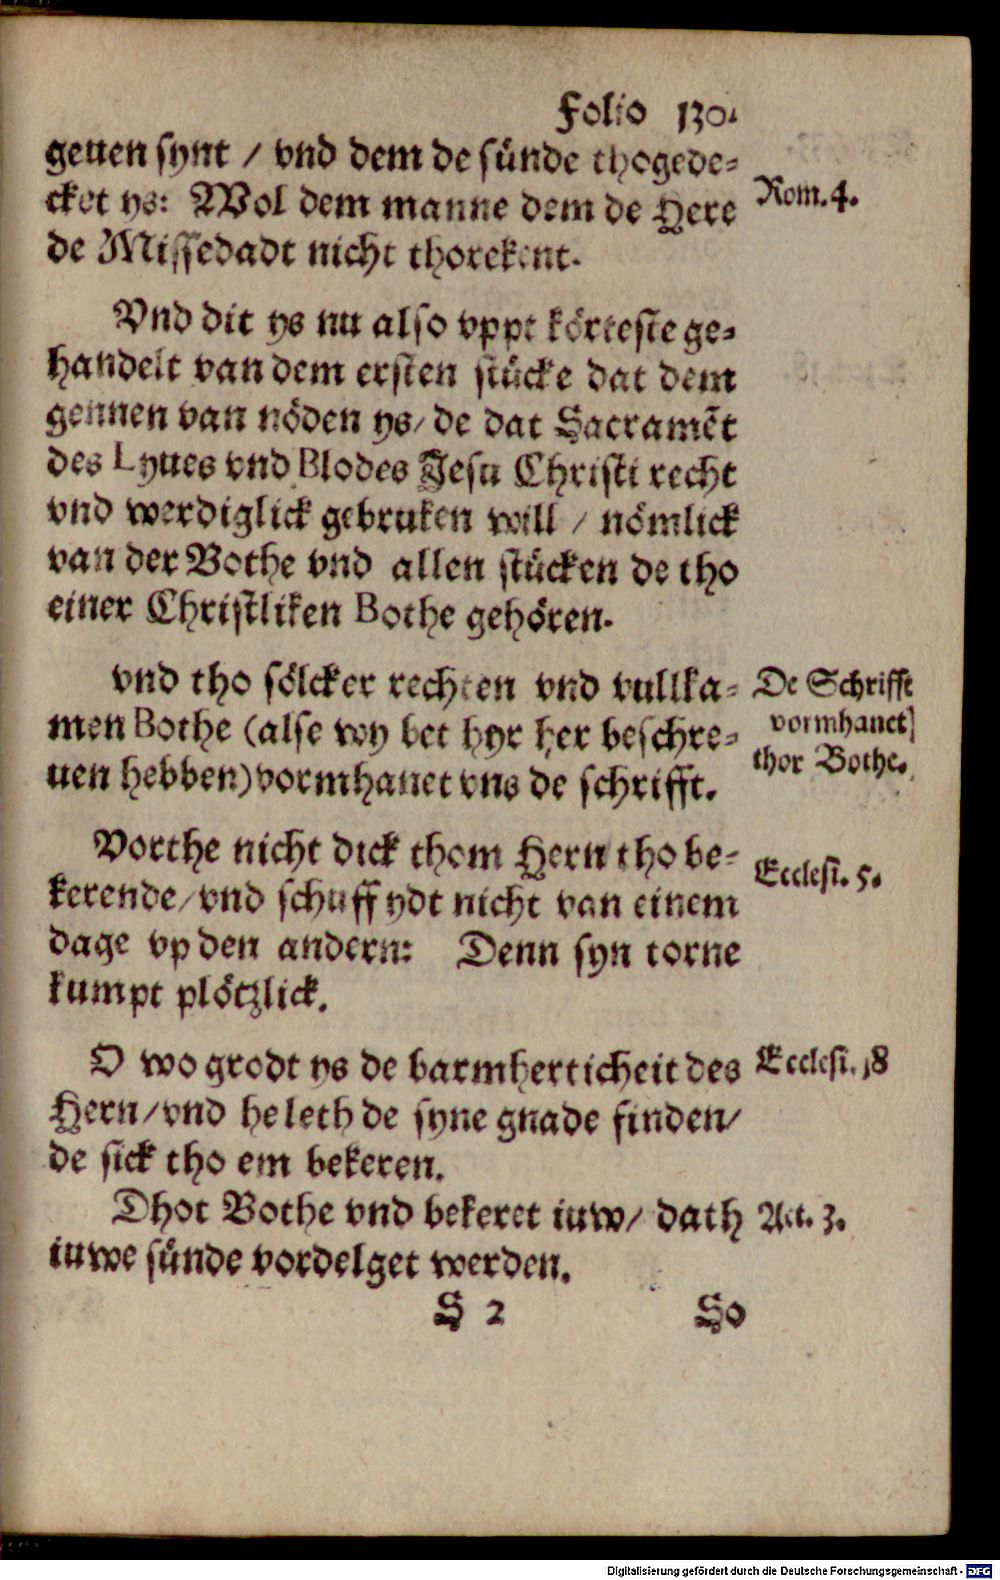 Folio 130.
geuen synt / vnd dem de sünde thogede=
cket ys: Wol dem manne dem de Here
Rom. 4.
de Missedadt nicht thorekent.
Vnd dit ys nu also vppt körteste ge=
handelt van dem ersten stücke dat dem
gennen van nöden ys/ de dat Sacramẽt
des Lyues vnd Blodes Jesu Christi recht
vnd werdiglick gebruken will / nömlick
van der Bothe vnd allen stücken de tho
einer Christliken Bothe gehören.
vnd tho sölcker rechten vnd vullka=
men Bothe (alse wy bet hyr her beschre=
uen hebben) vormhanet vns de schrifft.
De Schrifft
vormhanet
thor Bothe.
Vorthe nicht dick thom Hern tho be=
kerende/ vnd schuff ydt nicht van einem
dage vp den andern: Denn syn torne
kumpt plötzlick.
Ecclesi. 5.
O wo grodt ys de barmherticheit des
Hern/ vnd he leth de syne gnade finden/
de sick tho em bekeren.
Ecclesi. 18
Dhot Bothe vnd bekeret iuw/ dath
iuwe sünde vordelget werden.
Act. 3.
S 2 So
Digitalisierung gefördert durch die Deutsche Forschungsgemeinschaft - DFG